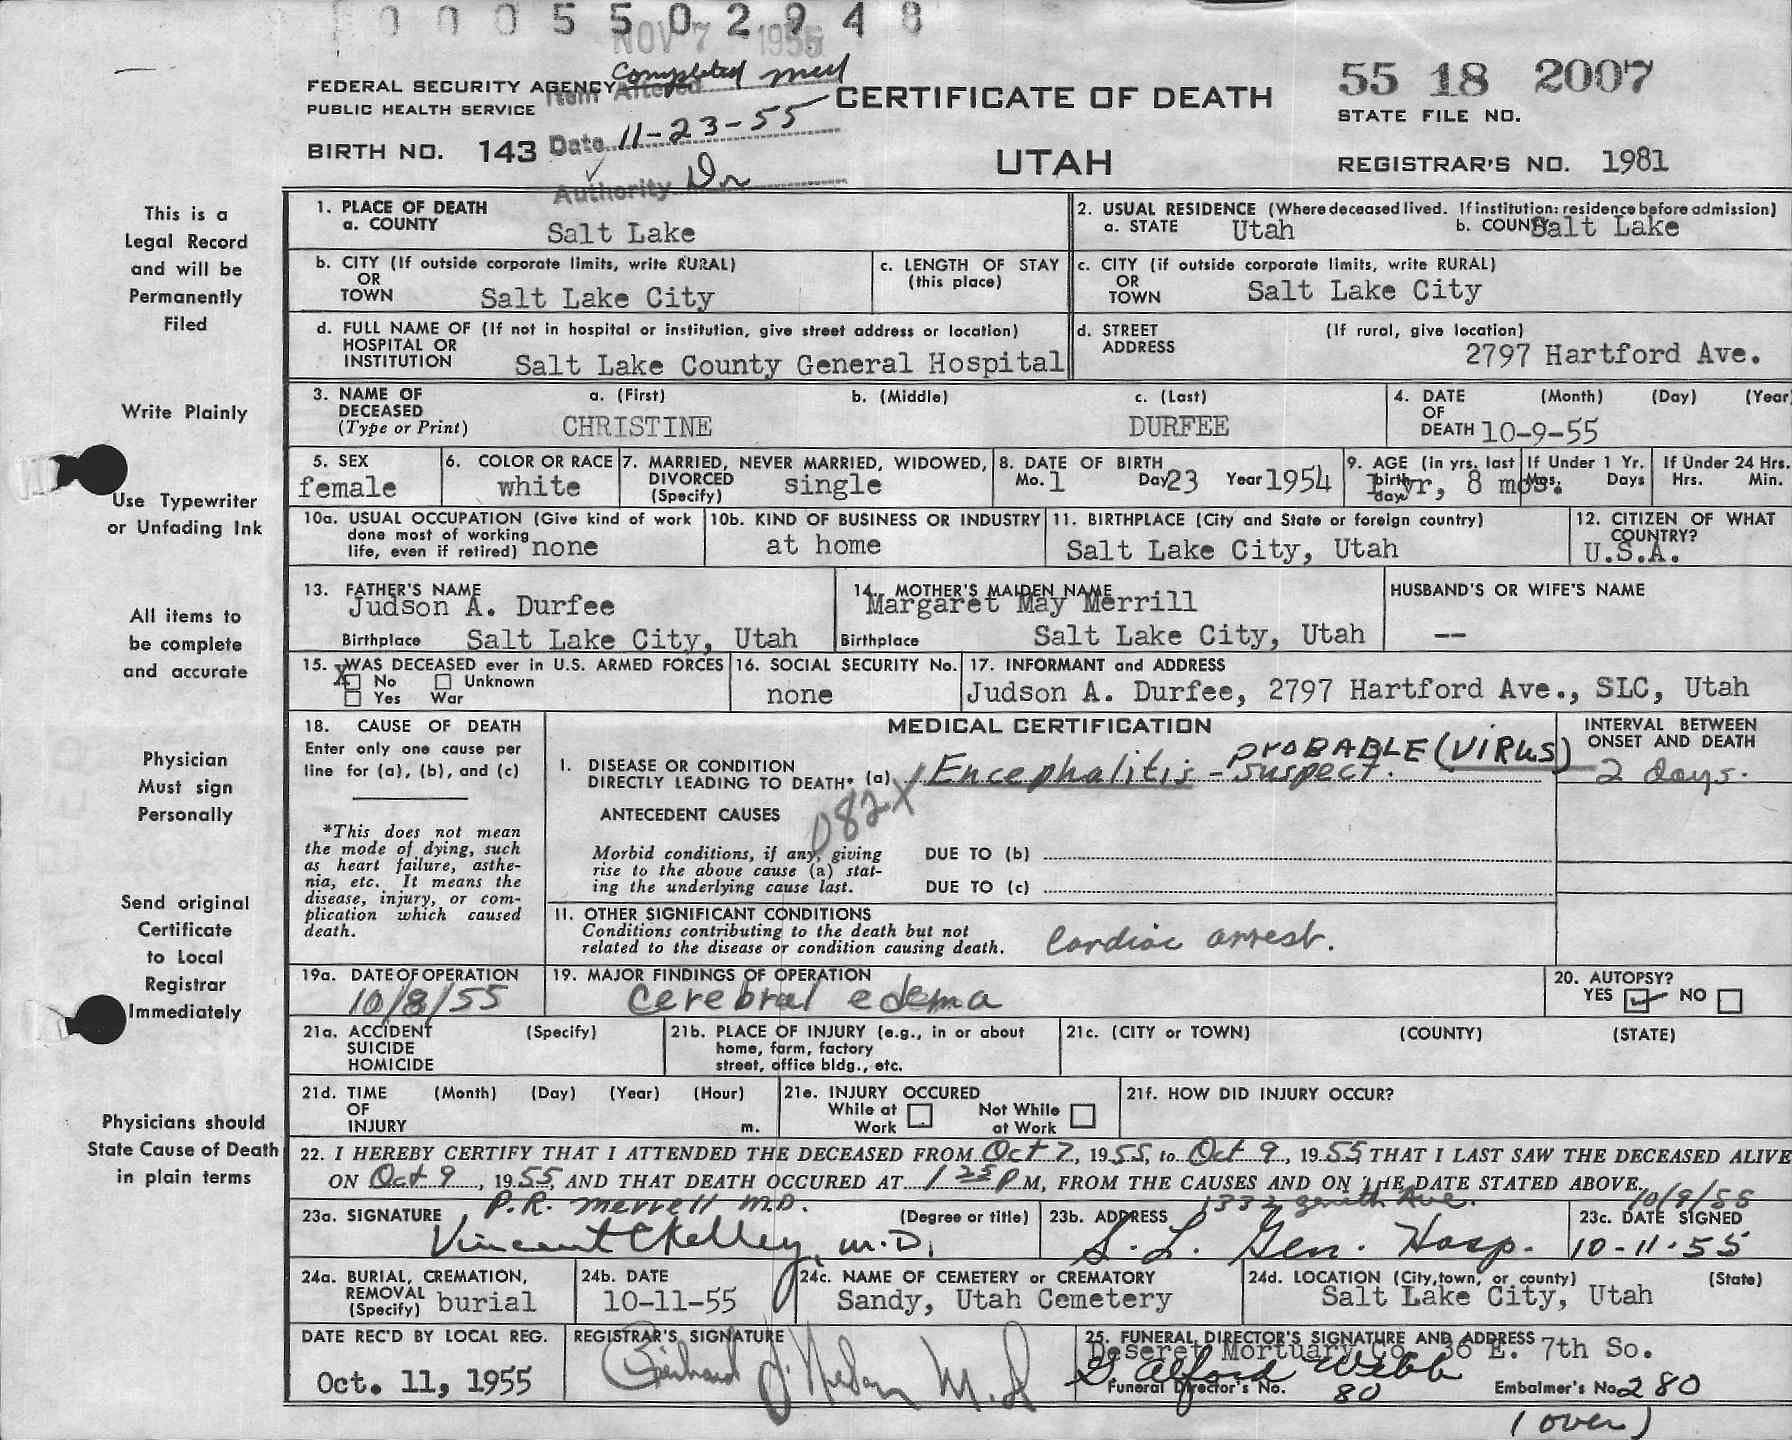 0 0 0 5 5 0 2 9 4 8
NOV 7 1955
FEDERAL SECURITY AGENCY
PUBLIC HEALTH SERVICE
Item Altered Completed med
Date 11-23-55
Authority Dr
BIRTH NO. 143
CERTIFICATE OF DEATH
UTAH
55 18 2007
STATE FILE NO.
REGISTRAR'S NO. 1981
This is a
Legal Record
and will be
Permanently
Filed
Write Plainly
Use Typewriter
or Unfading Ink
All items to
be complete
and accurate
Physician
Must sign
Personally
Send original
Certificate
to Local
Registrar
Immediately
Physicians should
State Cause of Death
in plain terms
1. PLACE OF DEATH
a. COUNTY Salt Lake
2. USUAL RESIDENCE (Where deceased lived. If institution: residence before admission)
a. STATE Utah b. COUNTY Salt Lake
b. CITY (If outside corporate limits, write RURAL)
OR
TOWN Salt Lake City
c. LENGTH OF STAY
(this place)
c. CITY (if outside corporate limits, write RURAL)
OR
TOWN Salt Lake City
d. FULL NAME OF (If not in hospital or institution, give street address or location)
HOSPITAL OR
INSTITUTION Salt Lake County General Hospital
d. STREET (If rural, give location)
ADDRESS 2797 Hartford Ave.
3. NAME OF a. (First) b. (Middle) c. (Last)
DECEASED
(Type or Print) CHRISTINE DURFEE
4. DATE (Month) (Day) (Year
OF
DEATH 10-9-55
5. SEX
female
6. COLOR OR RACE
white
7. MARRIED, NEVER MARRIED, WIDOWED,
DIVORCED
(Specify) single
8. DATE OF BIRTH
Mo. 1 Day 23 Year 1954
9. AGE (in yrs. last If Under 1 Yr. If Under 24 Hrs.
birth day) Mos. Days Hrs. Min.
1 yr, 8 mos.
10a. USUAL OCCUPATION (Give kind of work
done most of working
life, even if retired) none
10b. KIND OF BUSINESS OR INDUSTRY
at home
11. BIRTHPLACE (City and State or foreign country)
Salt Lake City, Utah
12. CITIZEN OF WHAT
COUNTRY?
U.S.A.
13. FATHER'S NAME
Judson A. Durfee
Birthplace Salt Lake City, Utah
14. MOTHER'S MAIDEN NAME
Margaret May Merrill
Birthplace Salt Lake City, Utah
HUSBAND'S OR WIFE'S NAME
--
15. WAS DECEASED ever in U.S. ARMED FORCES
X No Unknown
Yes War
16. SOCIAL SECURITY No.
none
17. INFORMANT and ADDRESS
Judson A. Durfee, 2797 Hartford Ave., SLC, Utah
18. CAUSE OF DEATH
Enter only one cause per
line for (a), (b), and (c)
*This does not mean
the mode of dying, such
as heart failure, asthe-
nia, etc. It means the
disease, injury, or com-
plication which caused
death.
MEDICAL CERTIFICATION
INTERVAL BETWEEN
ONSET AND DEATH
PROBABLE (VIRUS)
I. DISEASE OR CONDITION
DIRECTLY LEADING TO DEATH* (a) Encephalitis - suspect. 2 days.
082X
ANTECEDENT CAUSES
Morbid conditions, if any, giving
rise to the above cause (a) stat-
ing the underlying cause last.
DUE TO (b)
DUE TO (c)
II. OTHER SIGNIFICANT CONDITIONS
Conditions contributing to the death but not
related to the disease or condition causing death. Cardiac arrest.
19a. DATE OF OPERATION
10/8/55
19. MAJOR FINDINGS OF OPERATION
Cerebral edema
20. AUTOPSY?
YES ✓ NO
21a. ACCIDENT (Specify)
SUICIDE
HOMICIDE
21b. PLACE OF INJURY (e.g., in or about
home, farm, factory
street, office bldg., etc.
21c. (CITY or TOWN) (COUNTY) (STATE)
21d. TIME (Month) (Day) (Year) (Hour)
OF
INJURY m.
21e. INJURY OCCURED
While at Work Not While at Work
21f. HOW DID INJURY OCCUR?
22. I HEREBY CERTIFY THAT I ATTENDED THE DECEASED FROM Oct 7, 1955, to Oct 9, 1955, THAT I LAST SAW THE DECEASED ALIVE
ON Oct 9, 1955, AND THAT DEATH OCCURED AT 1 25 P M, FROM THE CAUSES AND ON THE DATE STATED ABOVE.
P.R. Merrell M.D. 1332 Zenith Ave. 10/9/55
23a. SIGNATURE (Degree or title)
Vincent C Kelley, M.D.
23b. ADDRESS
S. L. Gen. Hosp.
23c. DATE SIGNED
10-11-55
24a. BURIAL, CREMATION,
REMOVAL
(Specify) burial
24b. DATE
10-11-55
24c. NAME OF CEMETERY or CREMATORY
Sandy, Utah Cemetery
24d. LOCATION (City, town, or county) (State)
Salt Lake City, Utah
DATE REC'D BY LOCAL REG.
Oct. 11, 1955
REGISTRAR'S SIGNATURE
25. FUNERAL DIRECTOR'S SIGNATURE AND ADDRESS
Deseret Mortuary Co. 36 E. 7th So.
G Alford Webb
Funeral Director's No. 80 Embalmer's No. 280
(over)